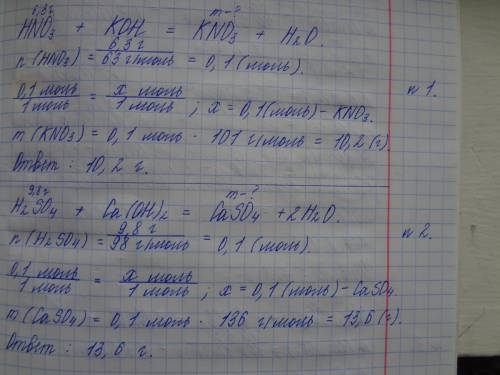 6,3 г m-?
HNO3 + KOH = KNO3 + H2O.
n (HNO3) = 6,3 г / 63 г/моль = 0,1 (моль).
n 1.
0,1 моль / 1 моль = x моль / 1 моль ; x = 0,1 (моль) - KNO3.
m (KNO3) = 0,1 моль · 101 г/моль = 10,2 (г).
Ответ : 10,2 г.
9,8 г m-?
H2SO4 + Ca(OH)2 = CaSO4 + 2H2O.
n (H2SO4) = 9,8 г / 98 г/моль = 0,1 (моль).
n 2.
0,1 моль / 1 моль = x моль / 1 моль ; x = 0,1 (моль) - CaSO4.
m (CaSO4) = 0,1 моль · 136 г/моль = 13,6 (г).
Ответ : 13,6 г.